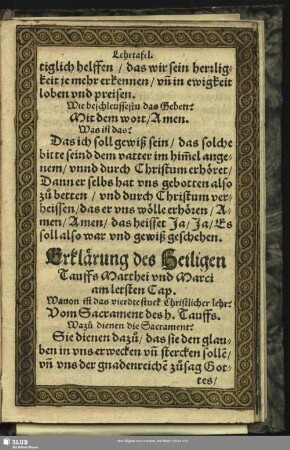 Lehrtafel.
tiglich helffen / das wir sein herrlig-
keit je mehr erkennen / vñ in ewigkeit
loben vnd preisen.
Wie beschleussestu das Gebett?
Mit dem wort / Amen.
Was ist das?
Das ich soll gewiß sein / das solche
bitte seind dem vatter im him̃el ange-
nem / vnnd durch Christum erhöret /
Dann er selbs hat vns gebotten also
zů betten / vnd durch Christum ver-
heissen / das er vns wölle erhören / A-
men / Amen / das heisset Ja / Ja / Es
soll also war vnd gewiß geschehen.
Erklärung des Heiligen
Tauffs Matthei vnd Marci
am letsten Cap.
Wanon ist das vierdte stuck Christlicher lehr?
Vom Sacrament des h. Tauffs.
Wazů dienen die Sacrament?
Sie dienen dazů / das sie den glau-
ben in vns erwecken vñ stercken sollẽ /
vñ vns der gnadenreichẽ zůsag Got-
tes /
SLUB